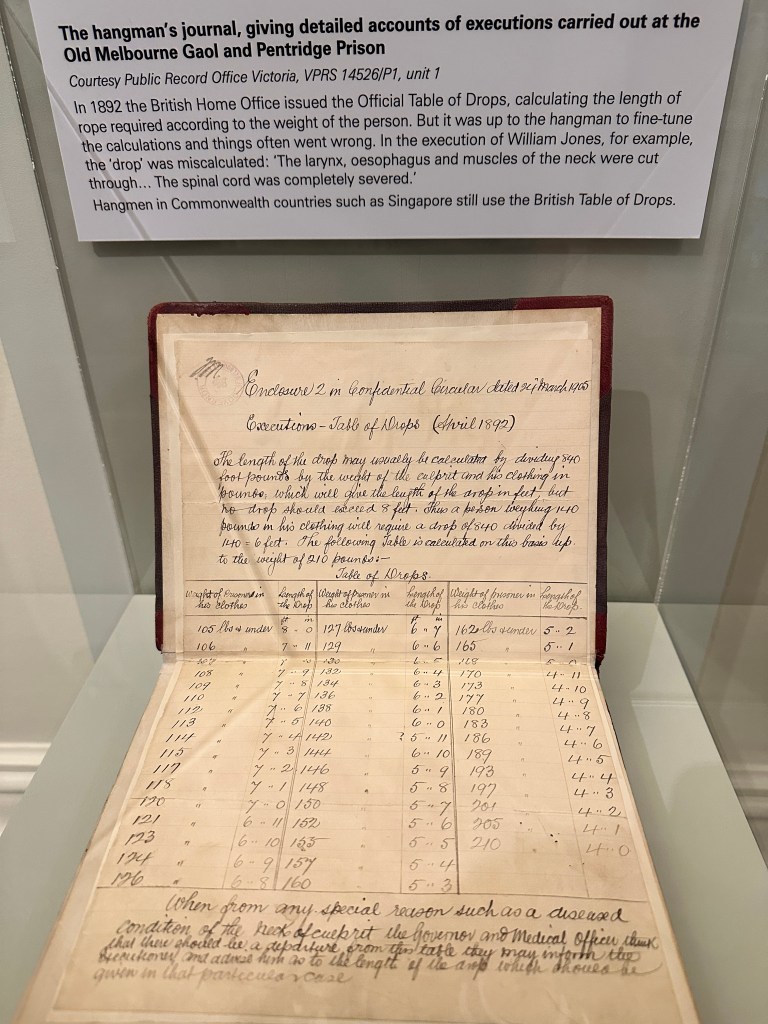 The hangman's journal, giving detailed accounts of executions carried out at the
Old Melbourne Gaol and Pentridge Prison
Courtesy Public Record Office Victoria, VPRS 14526/P1, unit 1
In 1892 the British Home Office issued the Official Table of Drops, calculating the length of
rope required according to the weight of the person. But it was up to the hangman to fine-tune
the calculations and things often went wrong. In the execution of William Jones, for example,
the 'drop' was miscalculated: 'The larynx, oesophagus and muscles of the neck were cut
through... The spinal cord was completely severed.'
Hangmen in Commonwealth countries such as Singapore still use the British Table of Drops.
Enclosure 2 in Confidential Circular dated March 1905
Executions – Table of Drops (April 1892)
The length of the drop may usually be calculated by dividing 840
foot pounds by the weight of the culprit and his clothing in
pounds, which will give the length of the drop in feet, but
no drop should exceed 8 feet. Thus a person weighing 140
pounds in his clothing will require a drop of 840 divided by
140 = 6 feet. The following Table is calculated on this basis up
to the weight of 210 pounds:–
Table of Drops.
Weight of Prisoner in his clothes Length of the Drop Weight of prisoner in his clothes Length of the Drop Weight of prisoner in his clothes Length of the Drop
ft in ft in
105 lbs & under 8 .. 0 127 lbs & under 6 .. 7 162 lbs & under 5 .. 2
106 " 7 .. 11 129 " 6 .. 6 165 " 5 .. 1
107 " 130 6 .. 5 5 .. 0
108 " 7 .. 9 132 " 6 .. 4 170 " 4 .. 11
109 " 7 .. 8 134 " 6 .. 3 173 " 4 .. 10
110 " 7 .. 7 136 " 6 .. 2 177 " 4 .. 9
112 " 7 .. 6 138 " 6 .. 1 180 " 4 .. 8
113 " 7 .. 5 140 " 6 .. 0 183 " 4 .. 7
114 " 7 .. 4 142 " ? 5 .. 11 186 " 4 .. 6
115 " 7 .. 3 144 " 6 .. 10 189 " 4 .. 5
117 " 7 .. 2 146 " 5 .. 9 193 " 4 .. 4
118 " 7 .. 1 148 " 5 .. 8 197 " 4 .. 3
120 " 7 .. 0 150 " 5 .. 7 201 " 4 .. 2
121 " 6 .. 11 152 " 5 .. 6 205 " 4 .. 1
123 " 6 .. 10 155 " 5 .. 5 210 " 4 .. 0
124 " 6 .. 9 157 " 5 .. 4
126 " 6 .. 8 160 " 5 .. 3
When from any special reason such as a diseased
condition of the neck of culprit the Governor and Medical Officer think
that there should be a departure from this table they may inform the
executioner and advise him as to the length of the drop which should be
given in that particular case